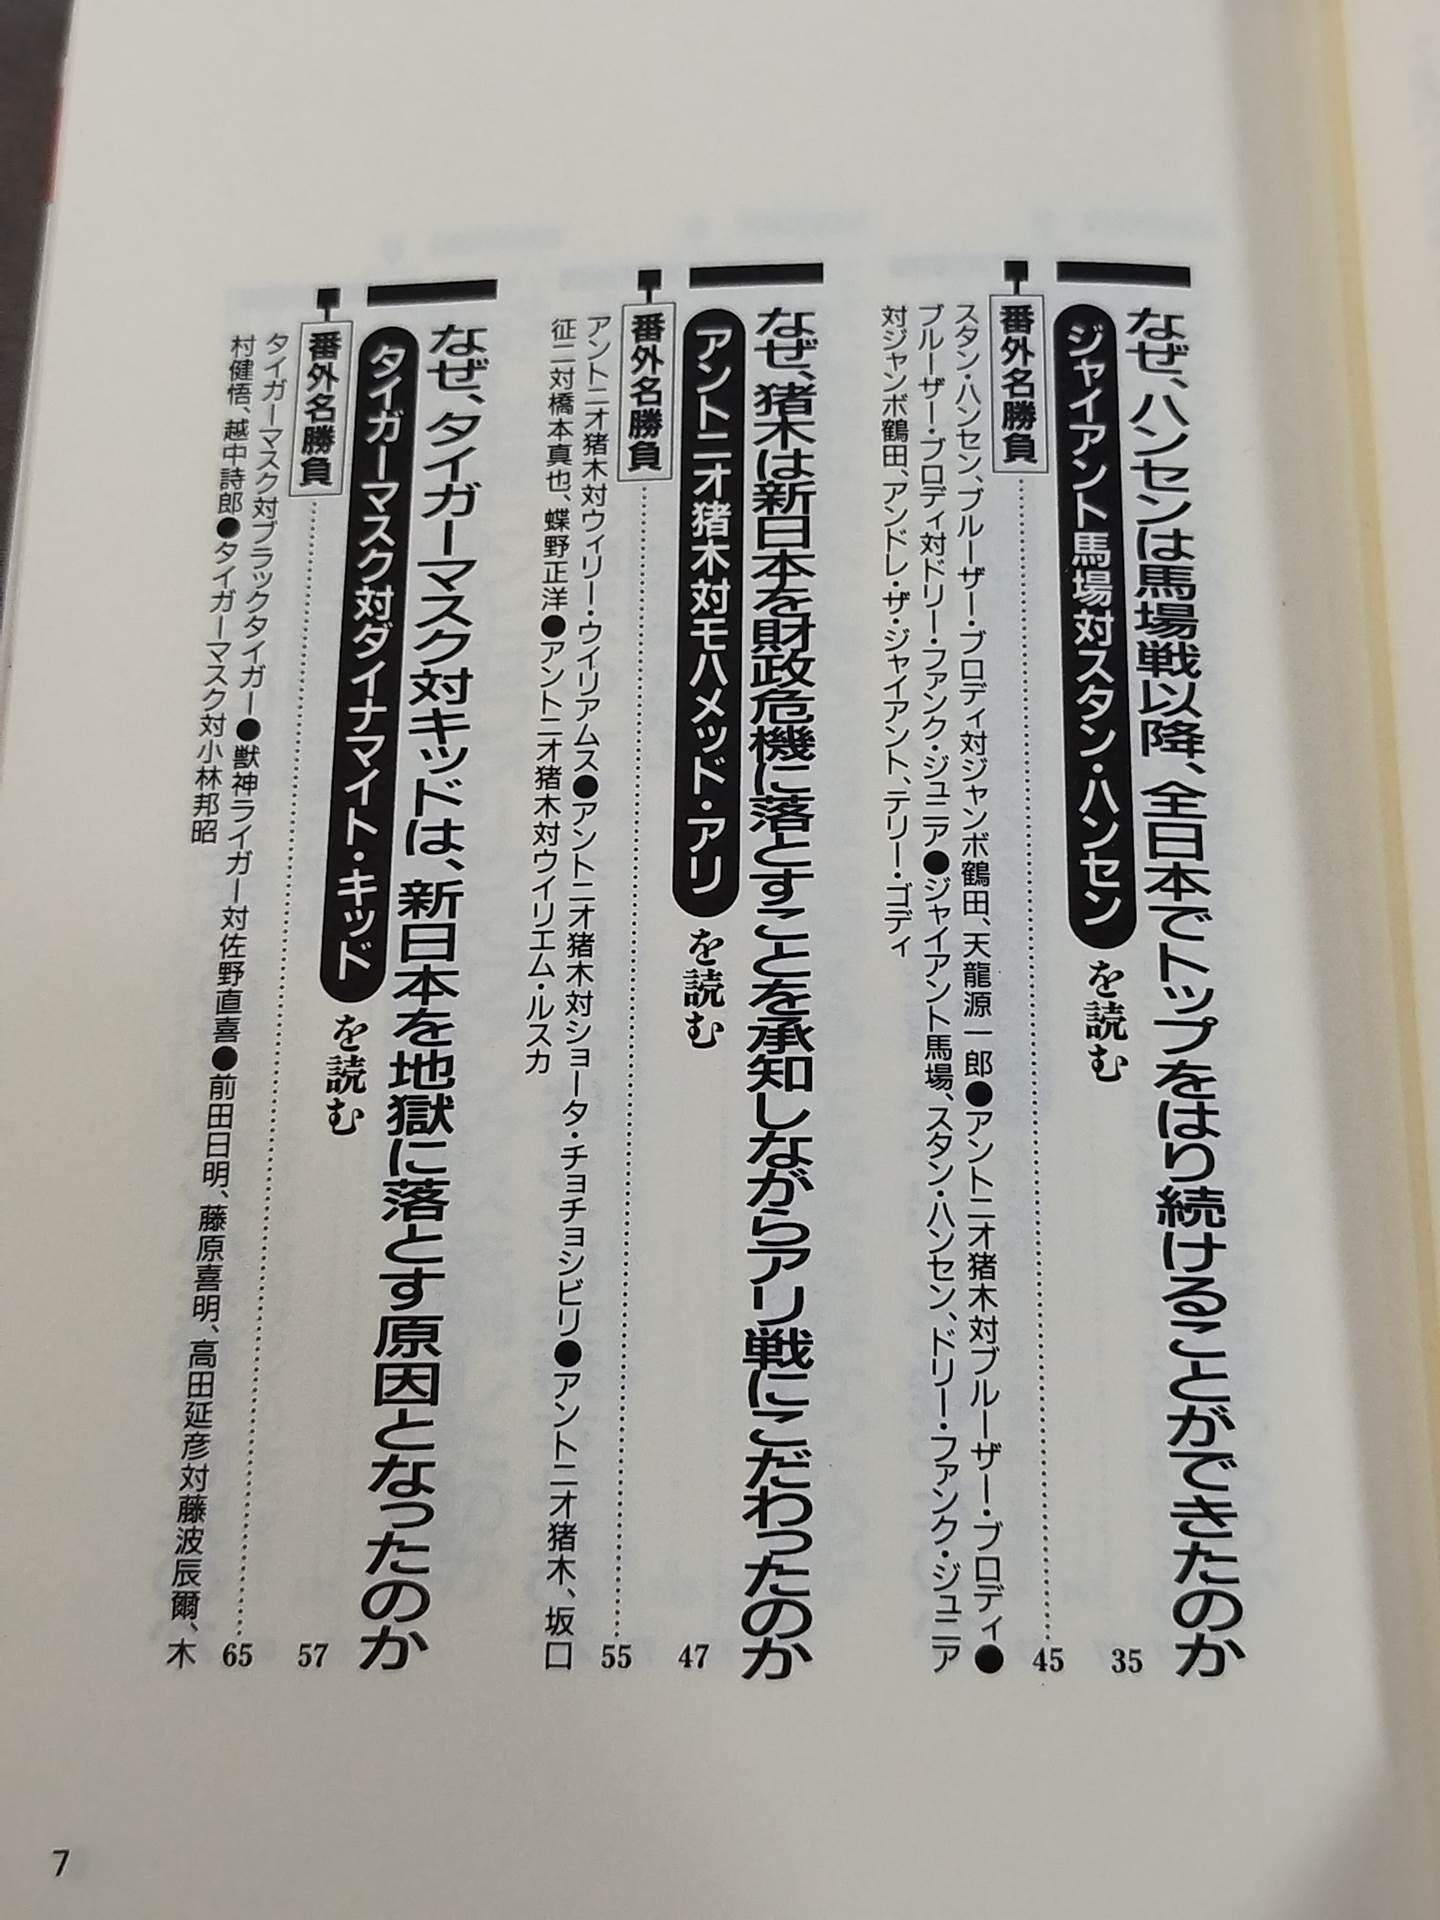 なぜ、ハンセンは馬場戦以降、全日本でトップをはり続けることができたのか
ジャイアント馬場対スタン・ハンセンを読む
35
番外名勝負
45
スタン・ハンセン、ブルーザー・ブロディ対ジャンボ鶴田、天龍源一郎●アントニオ猪木対ブルーザー・ブロディ●
ブルーザー・ブロディ対ドリー・ファンク・ジュニア●ジャイアント馬場、スタン・ハンセン、ドリー・ファンク・ジュニア
対ジャンボ鶴田、アンドレ・ザ・ジャイアント、テリー・ゴディ
なぜ、猪木は新日本を財政危機に落とすことを承知しながらアリ戦にこだわったのか
アントニオ猪木対モハメッド・アリを読む
47
番外名勝負
55
アントニオ猪木対ウィリー・ウイリアムス●アントニオ猪木対ショータ・チョチョシビリ●アントニオ猪木、坂口
征二対橋本真也、蝶野正洋●アントニオ猪木対ウイリエム・ルスカ
なぜ、タイガーマスク対キッドは、新日本を地獄に落とす原因となったのか
タイガーマスク対ダイナマイト・キッドを読む
57
番外名勝負
65
タイガーマスク対ブラックタイガー●獣神ライガー対佐野直喜●前田日明、藤原喜明、高田延彦対藤波辰爾、木
村健悟、越中詩郎●タイガーマスク対小林邦昭
7